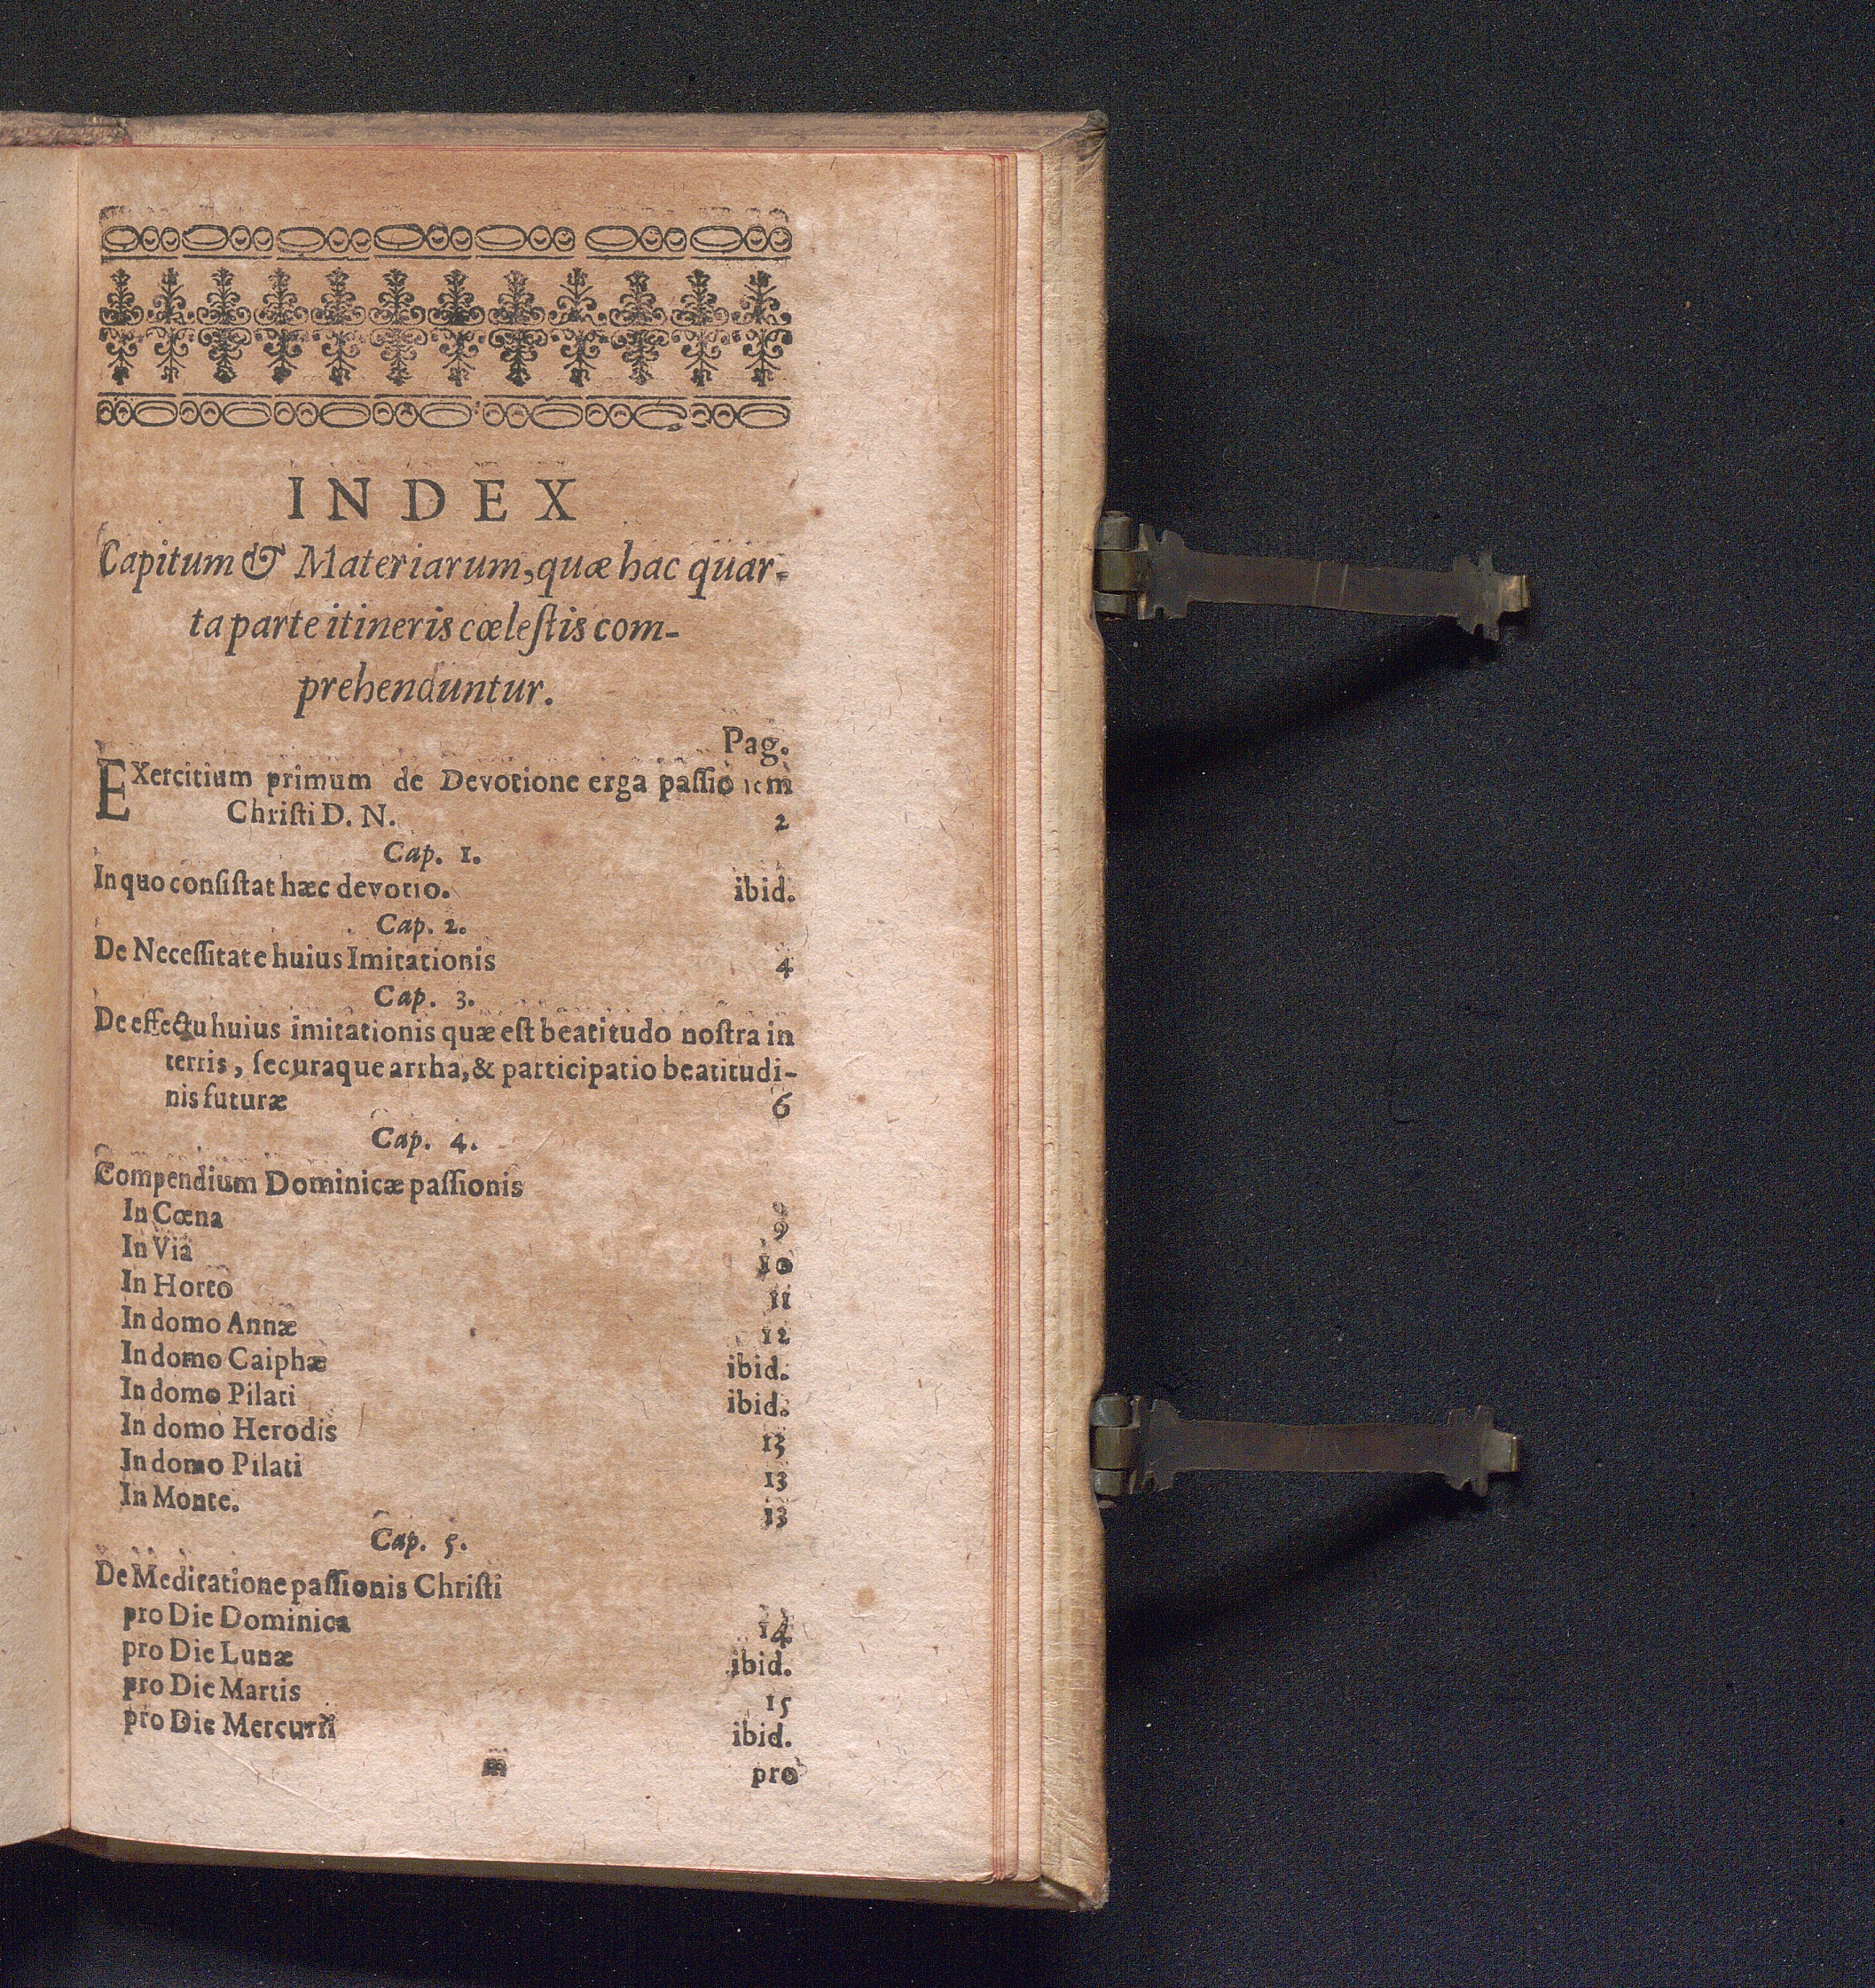 INDEX
Capitum & Materiarum, quæ hac quar-
ta parte itineris cœleſtis com-
prehenduntur.
Pag.
EXercitium primum de Devotione erga paſſionem
Chriſti D. N. 2
Cap. 1.
In quo conſiſtat hæc devotio. ibid.
Cap. 2.
De Neceſſitate huius Imitationis 4
Cap. 3.
De effectu huius imitationis quæ eſt beatitudo noſtra in
terris, ſecuraque arrha, & participatio beatitudi-
nis futuræ 6
Cap. 4.
Compendium Dominicæ paſſionis
In Cœna 9
In Via 10
In Horto 11
In domo Annæ 12
In domo Caiphæ ibid.
In domo Pilati ibid.
In domo Herodis 13
In domo Pilati 13
In Monte. 13
Cap. 5.
De Meditatione paſſionis Chriſti
pro Die Dominica 14
pro Die Lunæ ibid.
pro Die Martis 15
pro Die Mercurii ibid.
m pro